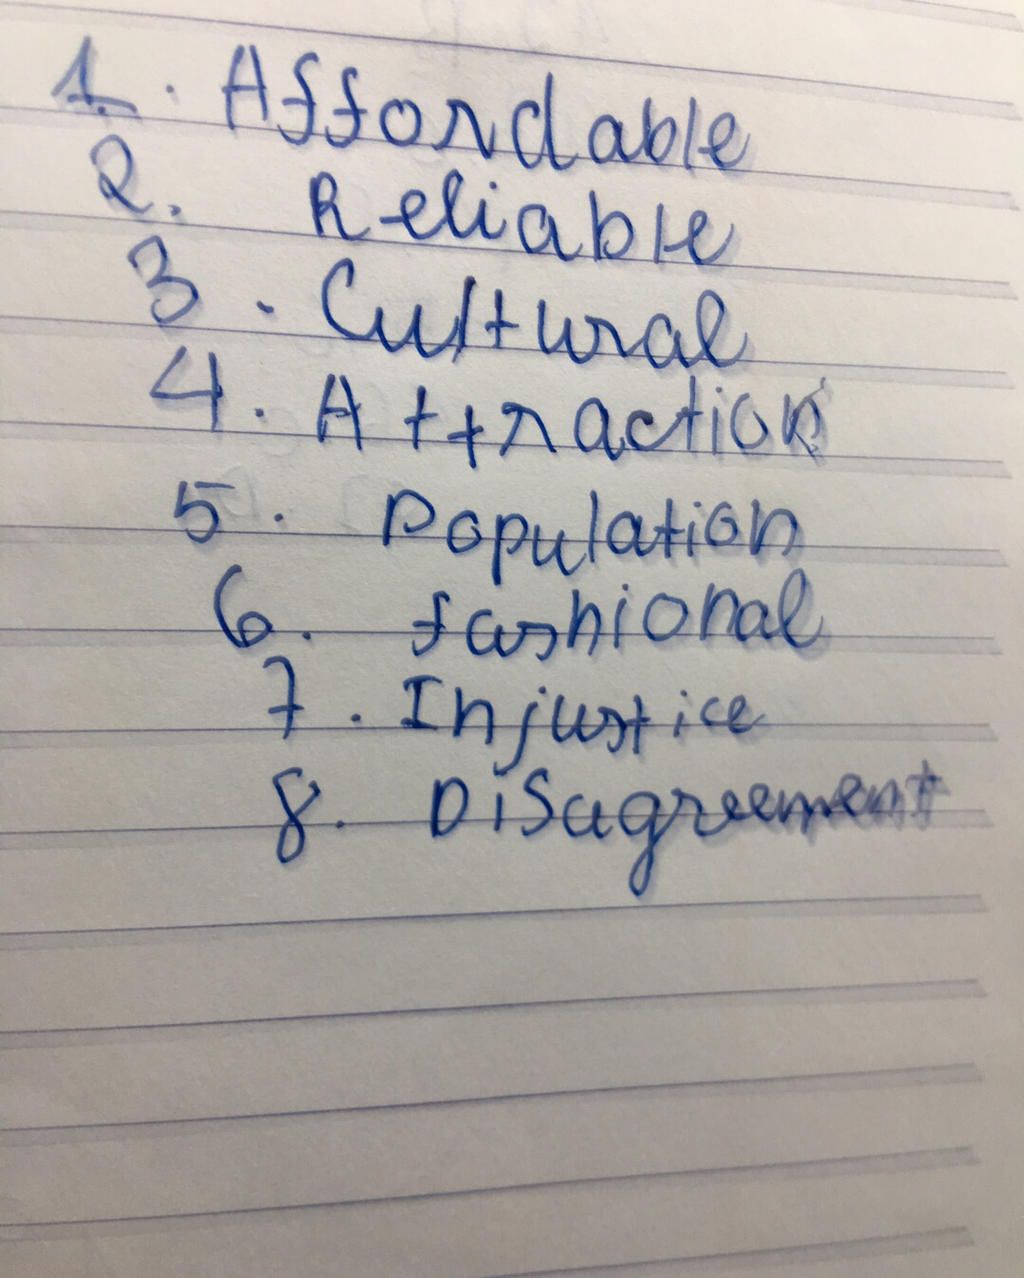 1. Affordable
2. Reliable
3. Cultural
4. Attraction
5. Population
6. fashional
7. Injustice
8. Disagreement